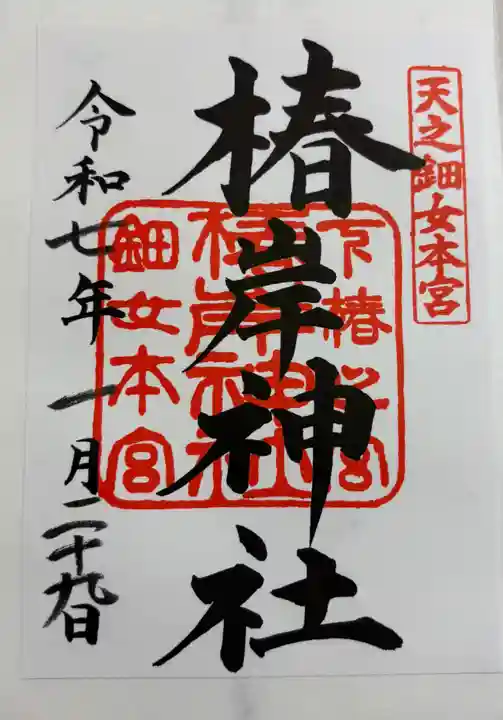 天之鈿女本宮
椿岸神社
椿岸神社
鈿女本宮
令和七年一月二十九日